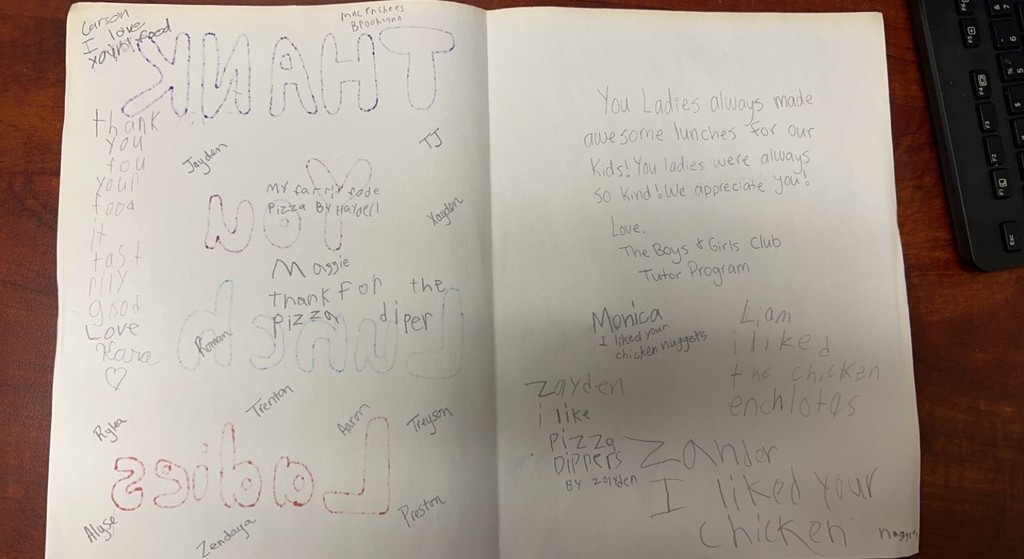 Carson
I love
your food
Mac en chees
Brooklynn
THANK
thank
you
fou
your
food
it
tast
rily
good
Love
Kara
Jayden
TJ
YOU
My farrit fode
Pizza By Haydell
Xayden
Maggie
thank for the
pizza diper
Lunch
Roman
Trenton
Aaron
Treyson
Rylea
Ladies
Alyse
Zendaya
Preston
You Ladies always made
awesome lunches for our
Kids! You ladies were always
so kind! We appreciate you!
Love,
The Boys & Girls Club
Tutor Program
Monica
I liked your
chicken nuggets
Liam
i liked
the chicken
enchlotas
Zayden
i like
pizza
Dippers
BY Zayden
Zander
I liked your
chicken nuggets